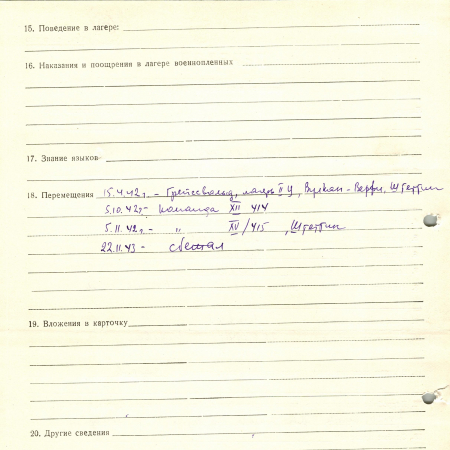 15. Поведение в лагере:
16. Наказания и поощрения в лагере военнопленных
17. Знание языков
18. Перемещения 15.4.42г. – Грейфсвальд, лагерь II Ц, Вулкан - Верфи, Штеттин
5.10.42г. – команда XII 414
5.11.42г. – " XV/415, Штеттин
22.11.43 – сбежал
19. Вложения в карточку
20. Другие сведения